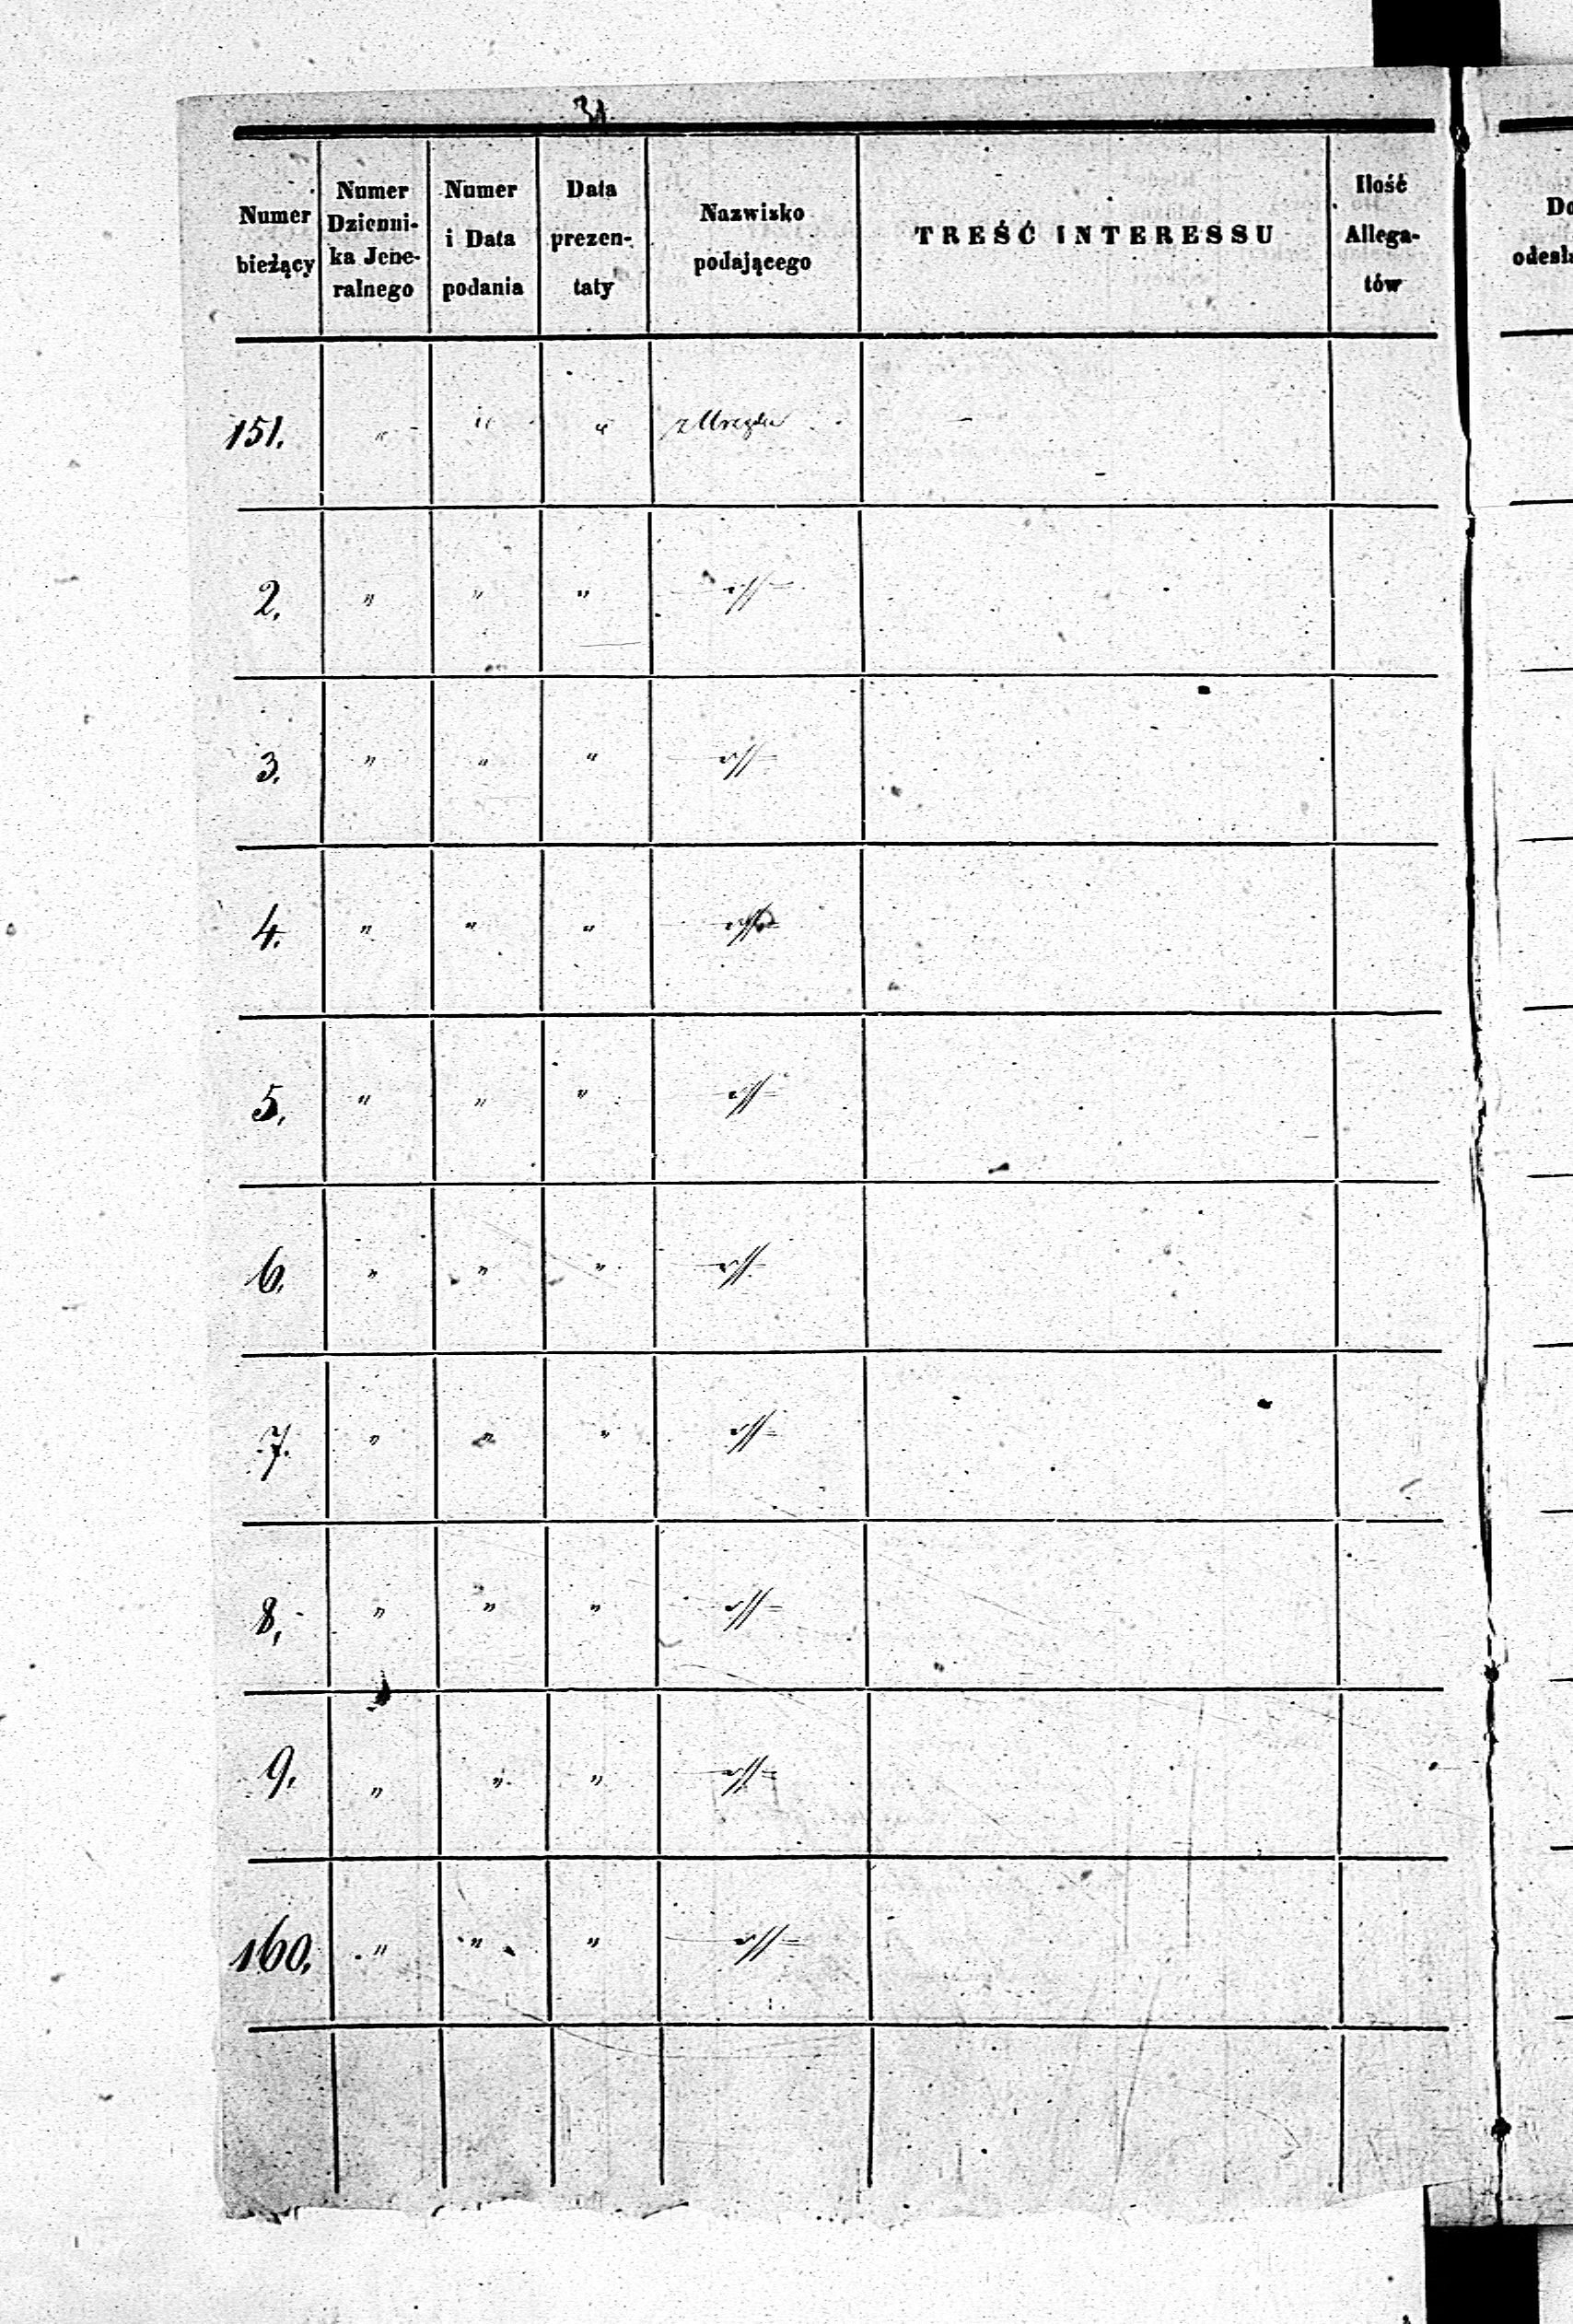 Numer bieżący | Numer Dzienni-ka Jene-ralnego | Numer i Data podania | Data prezen-taty | Nazwisko podającego | TREŚĆ INTERESSU | Ilość Allega-tów
151. | " | " | " | z Urzędu
2. | " | " | "
3. | " | " | "
4. | " | " | "
5. | " | " | "
6. | " | " | "
7. | " | " | "
8. | " | " | "
9. | " | " | "
160. | " | " | "